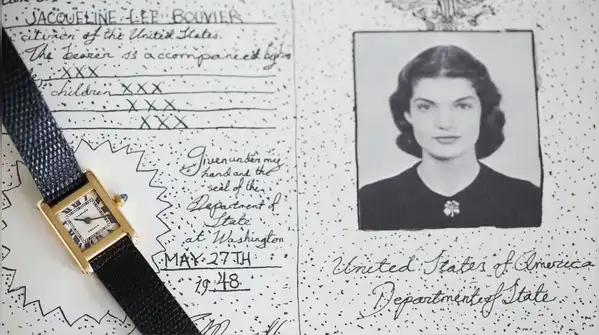 JACQUELINE LEE BOUVIER
citizen of the United States.
The bearer is accompanied by his
XXX
children XXX
XXX
XXX
Given under my
hand and the
seal of the
Department of
State
at Washington
MAY 27TH
1948
United States of America
Department of State